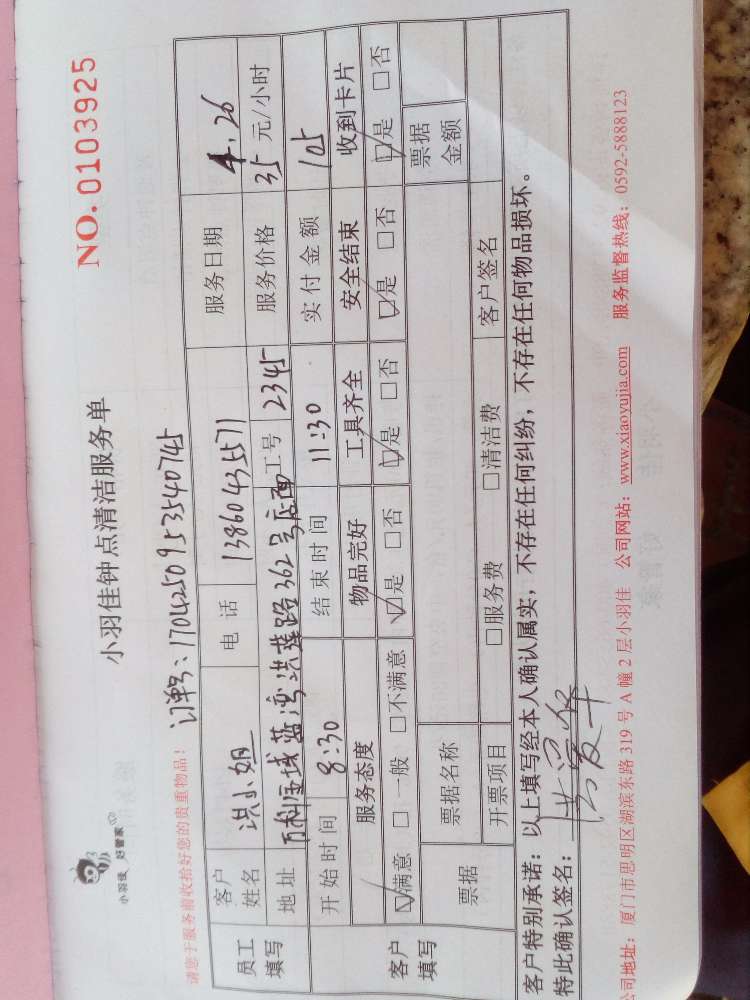 小羽佳 好管家
小羽佳钟点清洁服务单
NO.0103925
请您于服务前收拾好您的贵重物品！
订单号：1704250953540745
员工填写 客户姓名 洪小姐 电话 13860435571 服务日期 4.26
地址 万科金域蓝湾洪莲路362号店面 工号 2345 服务价格 35 元/小时
开始时间 8:30 结束时间 11:30 实付金额 105
客户填写 服务态度 物品完好 工具齐全 安全结束 收到卡片
☑满意 □一般 □不满意 ☑是 □否 ☑是 □否 ☑是 □否 ☑是 □否
票据 票据名称 票据金额
开票项目 □服务费 □清洁费 客户签名
客户特别承诺：以上填写经本人确认属实，不存在任何纠纷，不存在任何物品损坏。
特此确认签名：
公司地址：厦门市思明区湖滨东路 319 号 A 幢 2 层小羽佳 公司网站：www.xiaoyujia.com 服务监督热线：0592-5888123